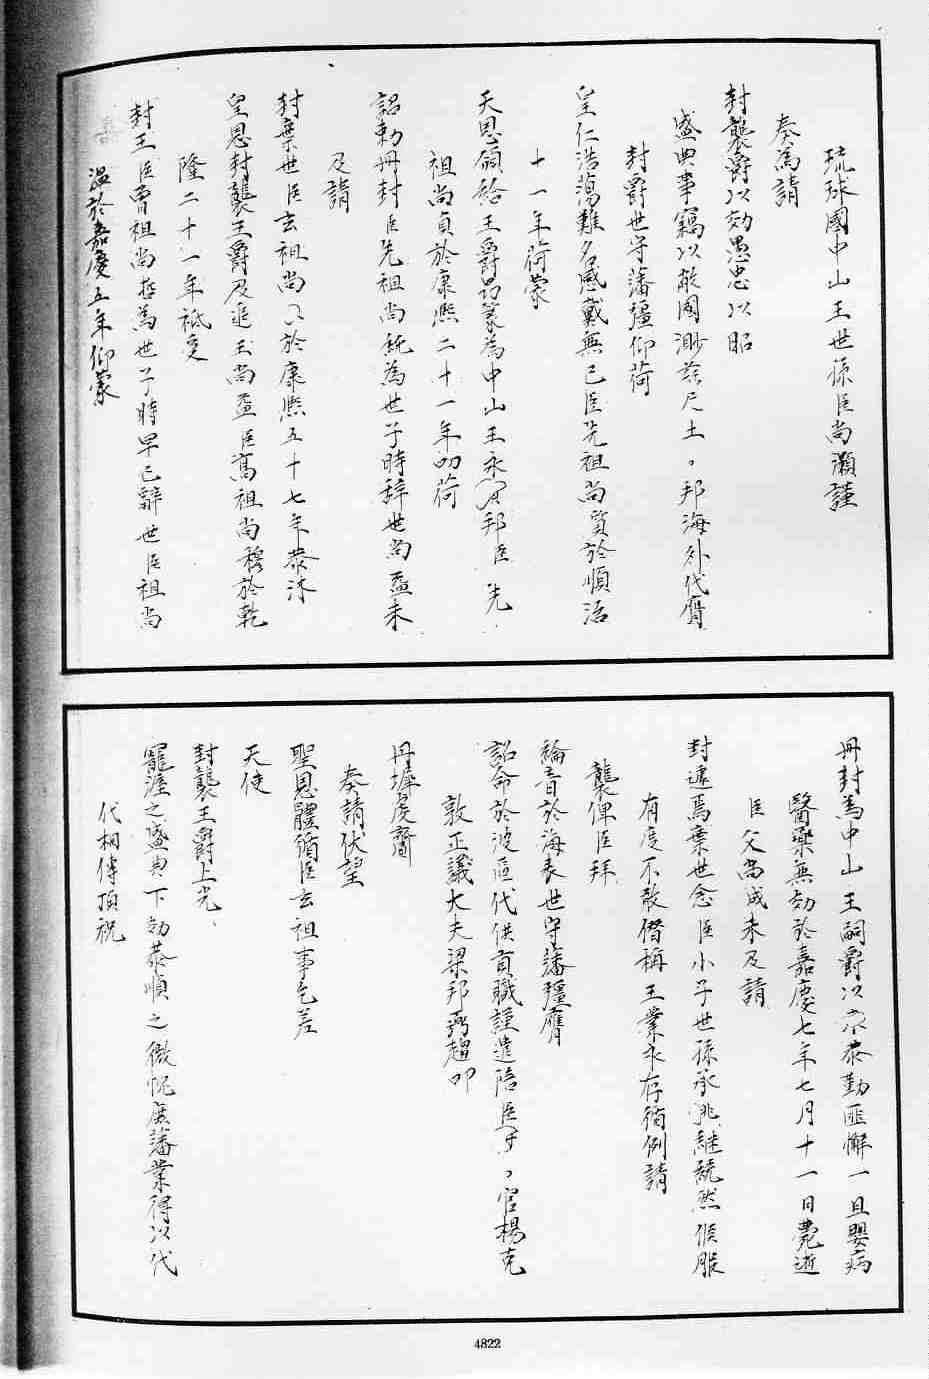 琉球國中山王世孫臣尚灝謹
奏為請
封襲爵以効愚忠以昭
盛典事竊以敝國渺茲尺土，邦海外代膺
封爵世守藩疆仰荷
皇仁浩蕩難名感戴無已臣先祖尚質於順治
十一年荷蒙
天恩頒給王爵篆為中山王永邦臣先
祖尚貞於康熙二十一年叨荷
詔勅冊封臣先祖尚純為世子時辭世尚益未
及請
封棄世臣玄祖尚於康熙五十七年恭沐
皇恩封襲王爵及追王尚益臣高祖尚穆於乾
隆二十一年祗受
封王臣曾祖尚哲為世子時早已辭世臣祖尚
溫於嘉慶五年仰蒙
冊封為中山王嗣爵以來恭勤匪懈一旦嬰病
醫藥無効於嘉慶七年七月十一日薨逝
臣父尚成未及請
封遽焉棄世念臣小子世孫承祧繼統然侯服
有度不敢僭稱王業永存循例請
襲俾臣拜
綸音於海表世守藩疆膺
詔命於波區代供貢職謹遣陪臣官楊克
敦正議大夫梁邦弼趨叩
丹墀虔齎
奏請伏望
聖恩體循臣玄祖事乞差
天使
封襲王爵上光
寵渥之盛典下効恭順之微忱庶藩業得以代
代相傳頂祝
4822